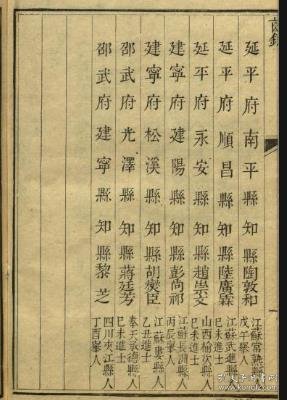 齒錄
延平府南平縣知縣陶敦和
江蘇常熟縣人
戊午舉人
延平府順昌縣知縣陸廣霖
江蘇武進縣人
己未進士
延平府永安縣知縣趙崇文
山西榆次縣人
己未進士
建寧府建陽縣知縣彭尚祁
江蘇長洲縣人
丙辰舉人
建寧府松溪縣知縣胡燮臣
江蘇婁縣人
乙丑進士
邵武府光澤縣知縣蔣廷芳
奉天承德縣人
己未進士
邵武府建寧縣知縣黎芝
四川夾江縣人
丁酉舉人